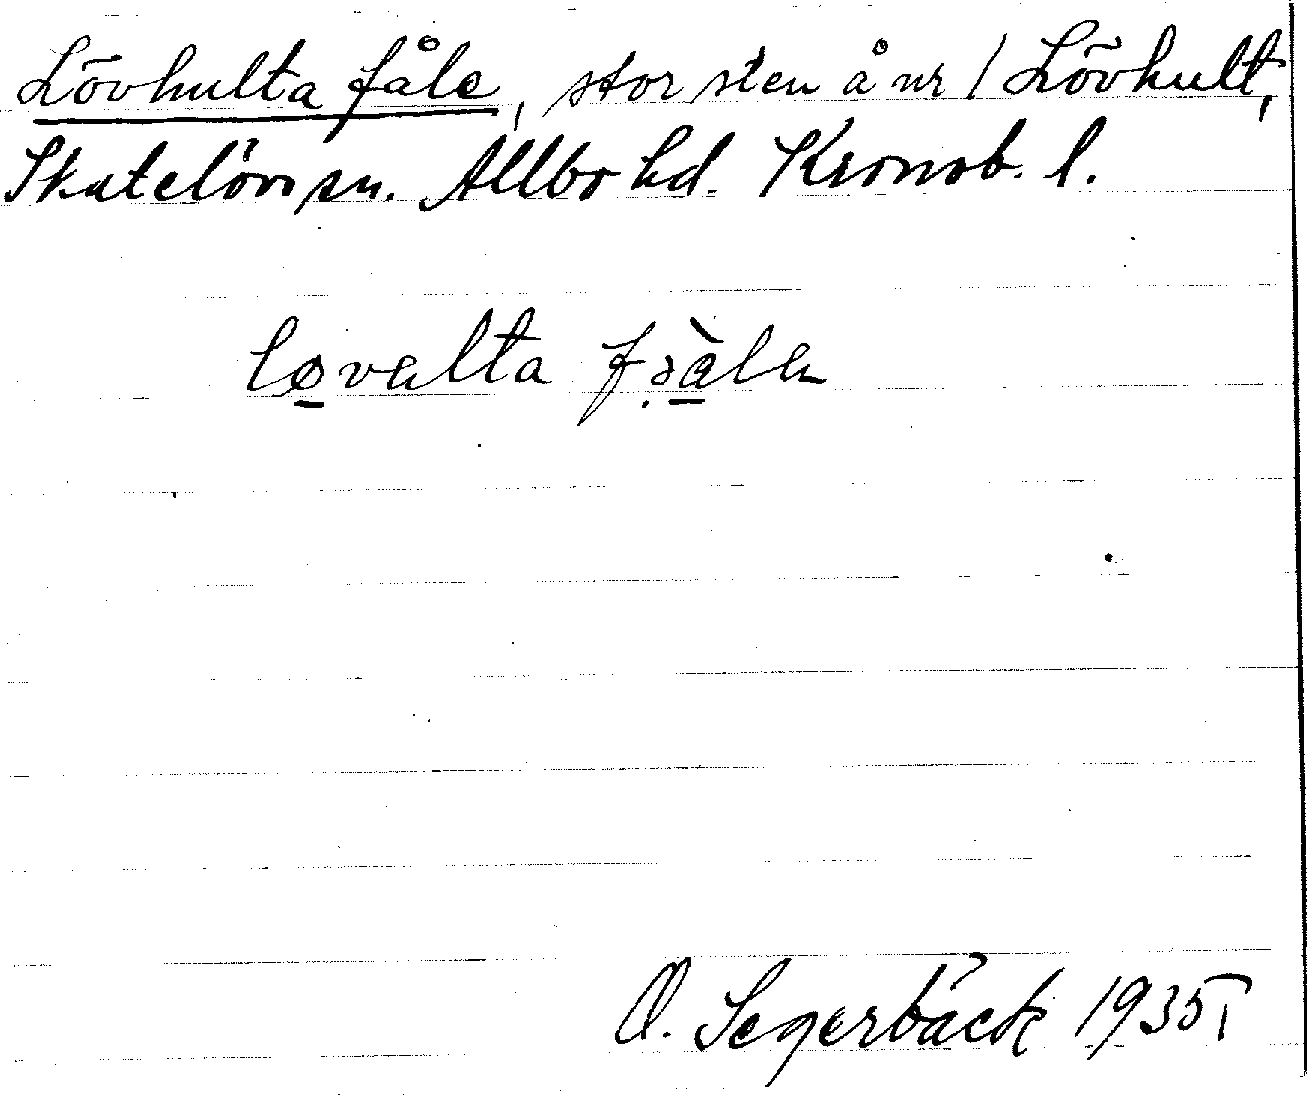 Lövhulta fåle, stor sten å nr 1 Lövhult,
Skatelövs sn. Allbo hd. Kronob. l.
løvalta
O. Segerbäck 1935